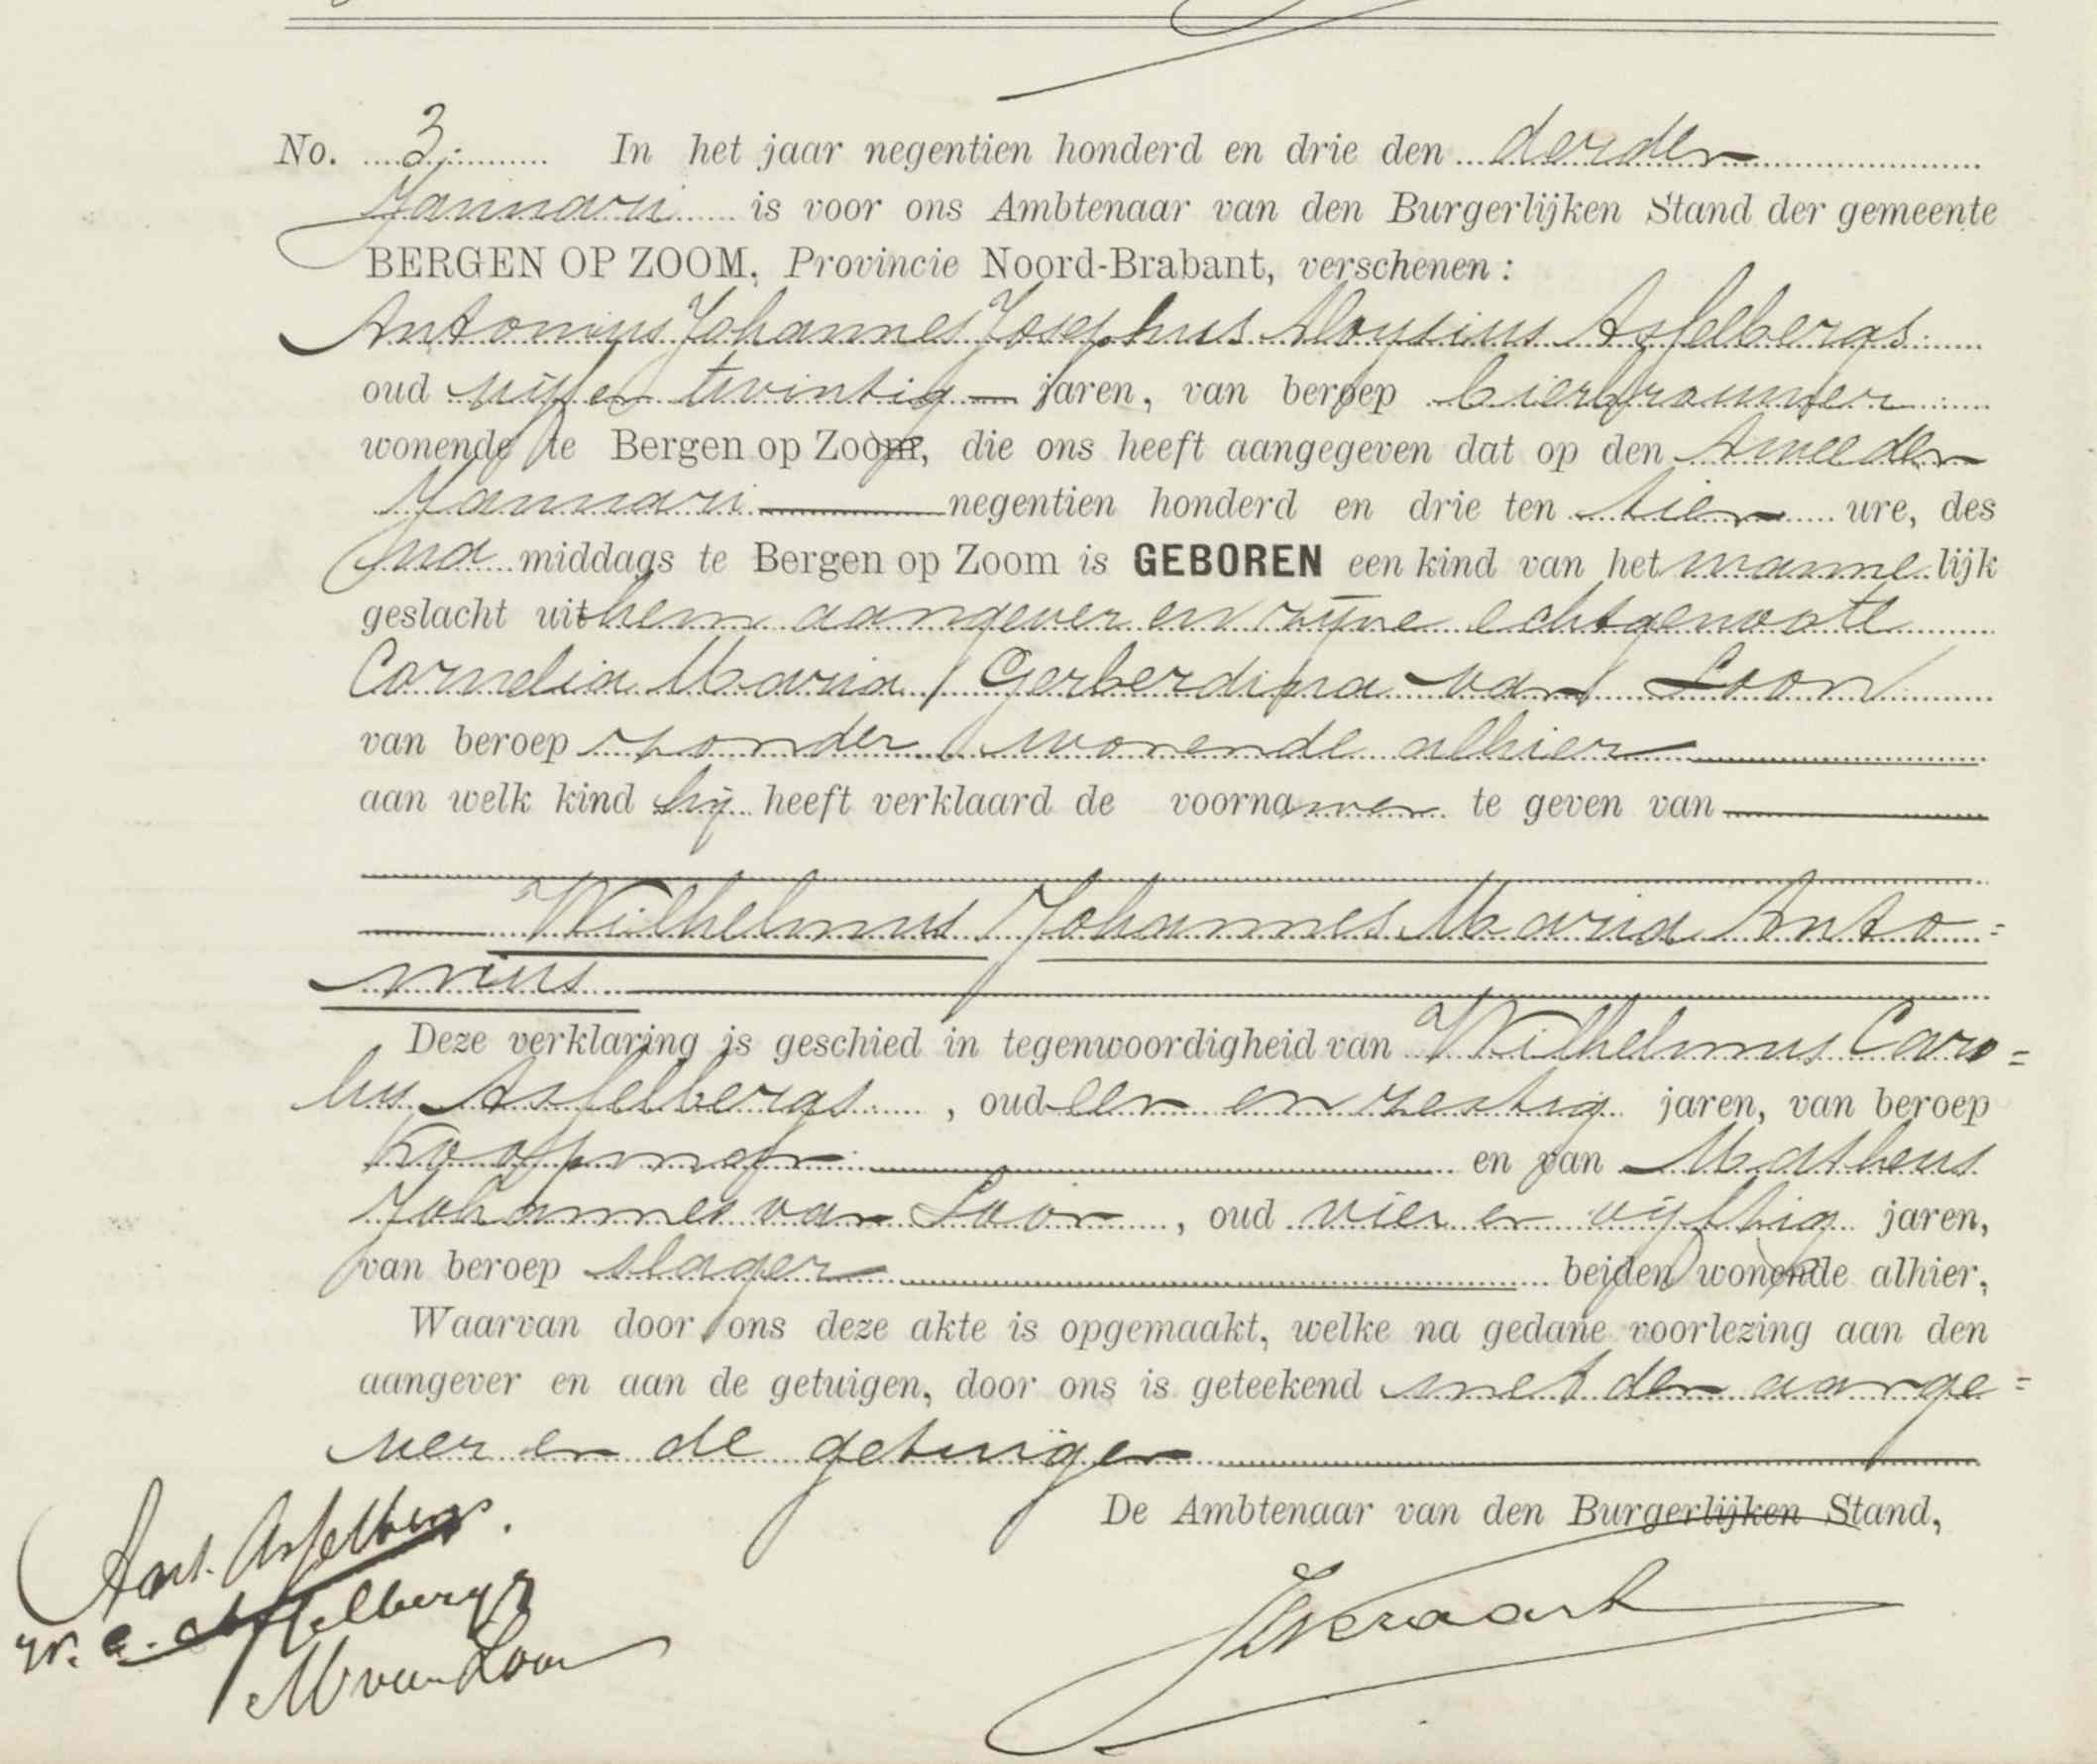 No. 3. In het jaar negentien honderd en drie den derden
Januari is voor ons Ambtenaar van den Burgerlijken Stand der gemeente
BERGEN OP ZOOM, Provincie Noord-Brabant, verschenen:
Antonius Johannes Josephus Aloysius Asselbergs
oud vijf en twintig — jaren, van beroep bierbrouwer
wonende te Bergen op Zoom, die ons heeft aangegeven dat op den tweeden
Januari — negentien honderd en drie ten tien ure, des
na middags te Bergen op Zoom is GEBOREN een kind van het manne lijk
geslacht uit hem aangever en zijne echtgenoote
Cornelia Maria Gerberdina van Loon
van beroep zonder wonende alhier
aan welk kind hij heeft verklaard de voornamen te geven van
Wilhelmus Johannes Maria Anto=
nius
Deze verklaring is geschied in tegenwoordigheid van Wilhelmus Caro=
lus Asselbergs, oud een en zestig jaren, van beroep
Koopman en van Matheus
Johannes van Loon, oud vier en vijftig jaren,
van beroep slager beiden wonende alhier,
Waarvan door ons deze akte is opgemaakt, welke na gedane voorlezing aan den
aangever en aan de getuigen, door ons is geteekend met den aange=
ver en de getuigen
De Ambtenaar van den Burgerlijken Stand,
Ant. Asselbergs.
W. C. Asselbergs
M van Loon